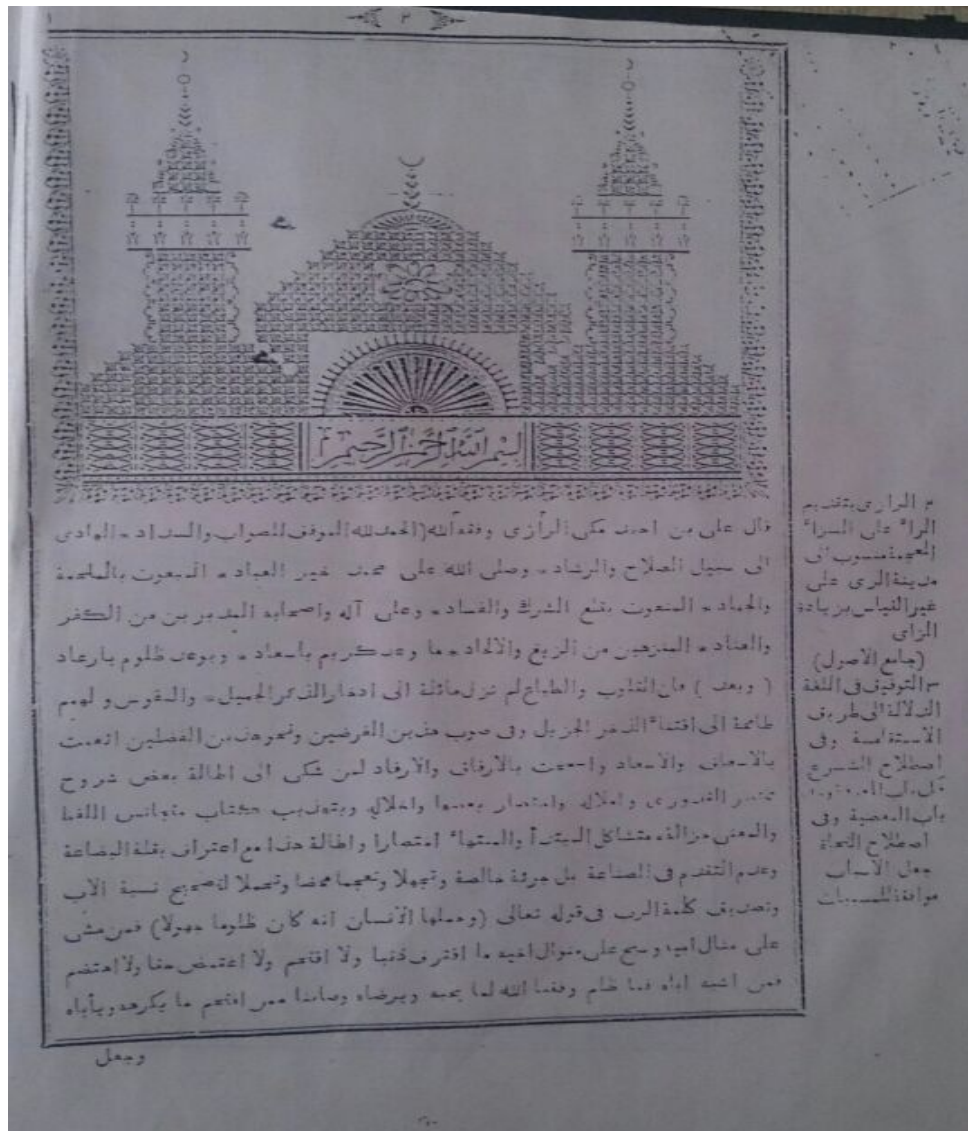 ٢
١
بسم الله الرحمن الرحيم
قال على بن احمد مكى الرازى وفقه الله (الحمد لله الموفق للصواب والسداد * الهادى
الى سبيل الصلاح والرشاد * وصلى الله على محمد خير العباد * المبعوث بالملحمة
والجهاد * المنعوت بقمع الشرك والفساد * وعلى آله واصحابه المتبرين من الكفر
والعناد * المنزهين من الزيغ والالحاد * ما وعد كريم باسعاد * وبوعد ظلوم بارعاد
(وبعد) فان القلوب والطباع لم تزل مائلة الى ادخار الذكر الجميل * والنفوس والهمم
طامحة الى اقتناء الذخر الجزيل وفى صوب هذين الغرضين ونحو هذين الفضلين انعمت
بالاسعاف والاسعاد واسمحت بالارفاق والارفاد لمن شكى الى اطالة بعض شروح
مختصر القدورى واملاله واختصار بعضها واخلاله وبتهذيب كتاب متجانس اللفظ
والمعنى متشاكل المبتدأ والمنتهاء اختصارا واطالة هذا مع اعتراف بقلة البضاعة
وعدم التقدم فى الصناعة بل جرئة خالصة وتجهلا وتعجما محضا وتحملا لتصحيح نسبة الاب
وتصديق كلمة الرب فى قوله تعالى (وحملها الانسان انه كان ظلوما جهولا) فمن مشى
على مثال ابيه ونسج على منوال اخيه ما اقترف ذنبا ولا اقتحم ولا اغتمض حقا ولا اهتضم
فمن اشبه اباه فما ظلم وفقنا الله لما يحبه ويرضاه وصاننا ممن اقتحم ما يكرهه ويأباه
وجعل
م الرازى بتقديم
الراء على الزاء
المعجمة منسوب الى
مدينة الرى على
غير القياس بزيادة
الزاى
(جامع الاصول)
التوفيق فى اللغة
الدلالة الى طريق
الاستقامة وفى
اصطلاح الشرع
باب المعصية وفى
اصطلاح النحاة
جعل الاسباب
موافقة للمسببات